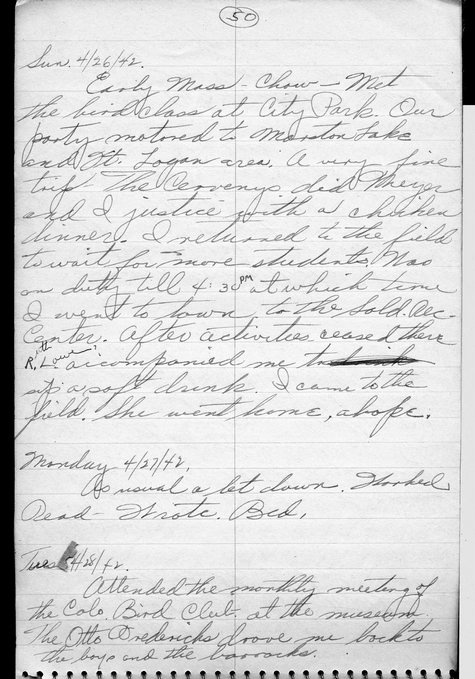 50
Sun. 4/26/42.
Early Mass - Chow - Met
the bird class at City Park. Our
party motored to Marston Lake
and Ft. Logan area. A very fine
trip. The Cervenys did Meyer
and I justice with a chicken
dinner. I returned to the field
to wait for more students. Was
on duty till 4:30 PM at which time
I went to town to the Sold. Rec.
Center. After activities ceased there
R. Lowe accompanied me to
sip a soft drink. I came to the
field. She went home, a hope.
Monday 4/27/42.
As usual a let down. Worked
Read - Wrote. Bed.
Tues 4/28/42.
Attended the monthly meeting of
the Colo. Bird Club at the museum.
The Otto drove me back to
the boys and the barracks.